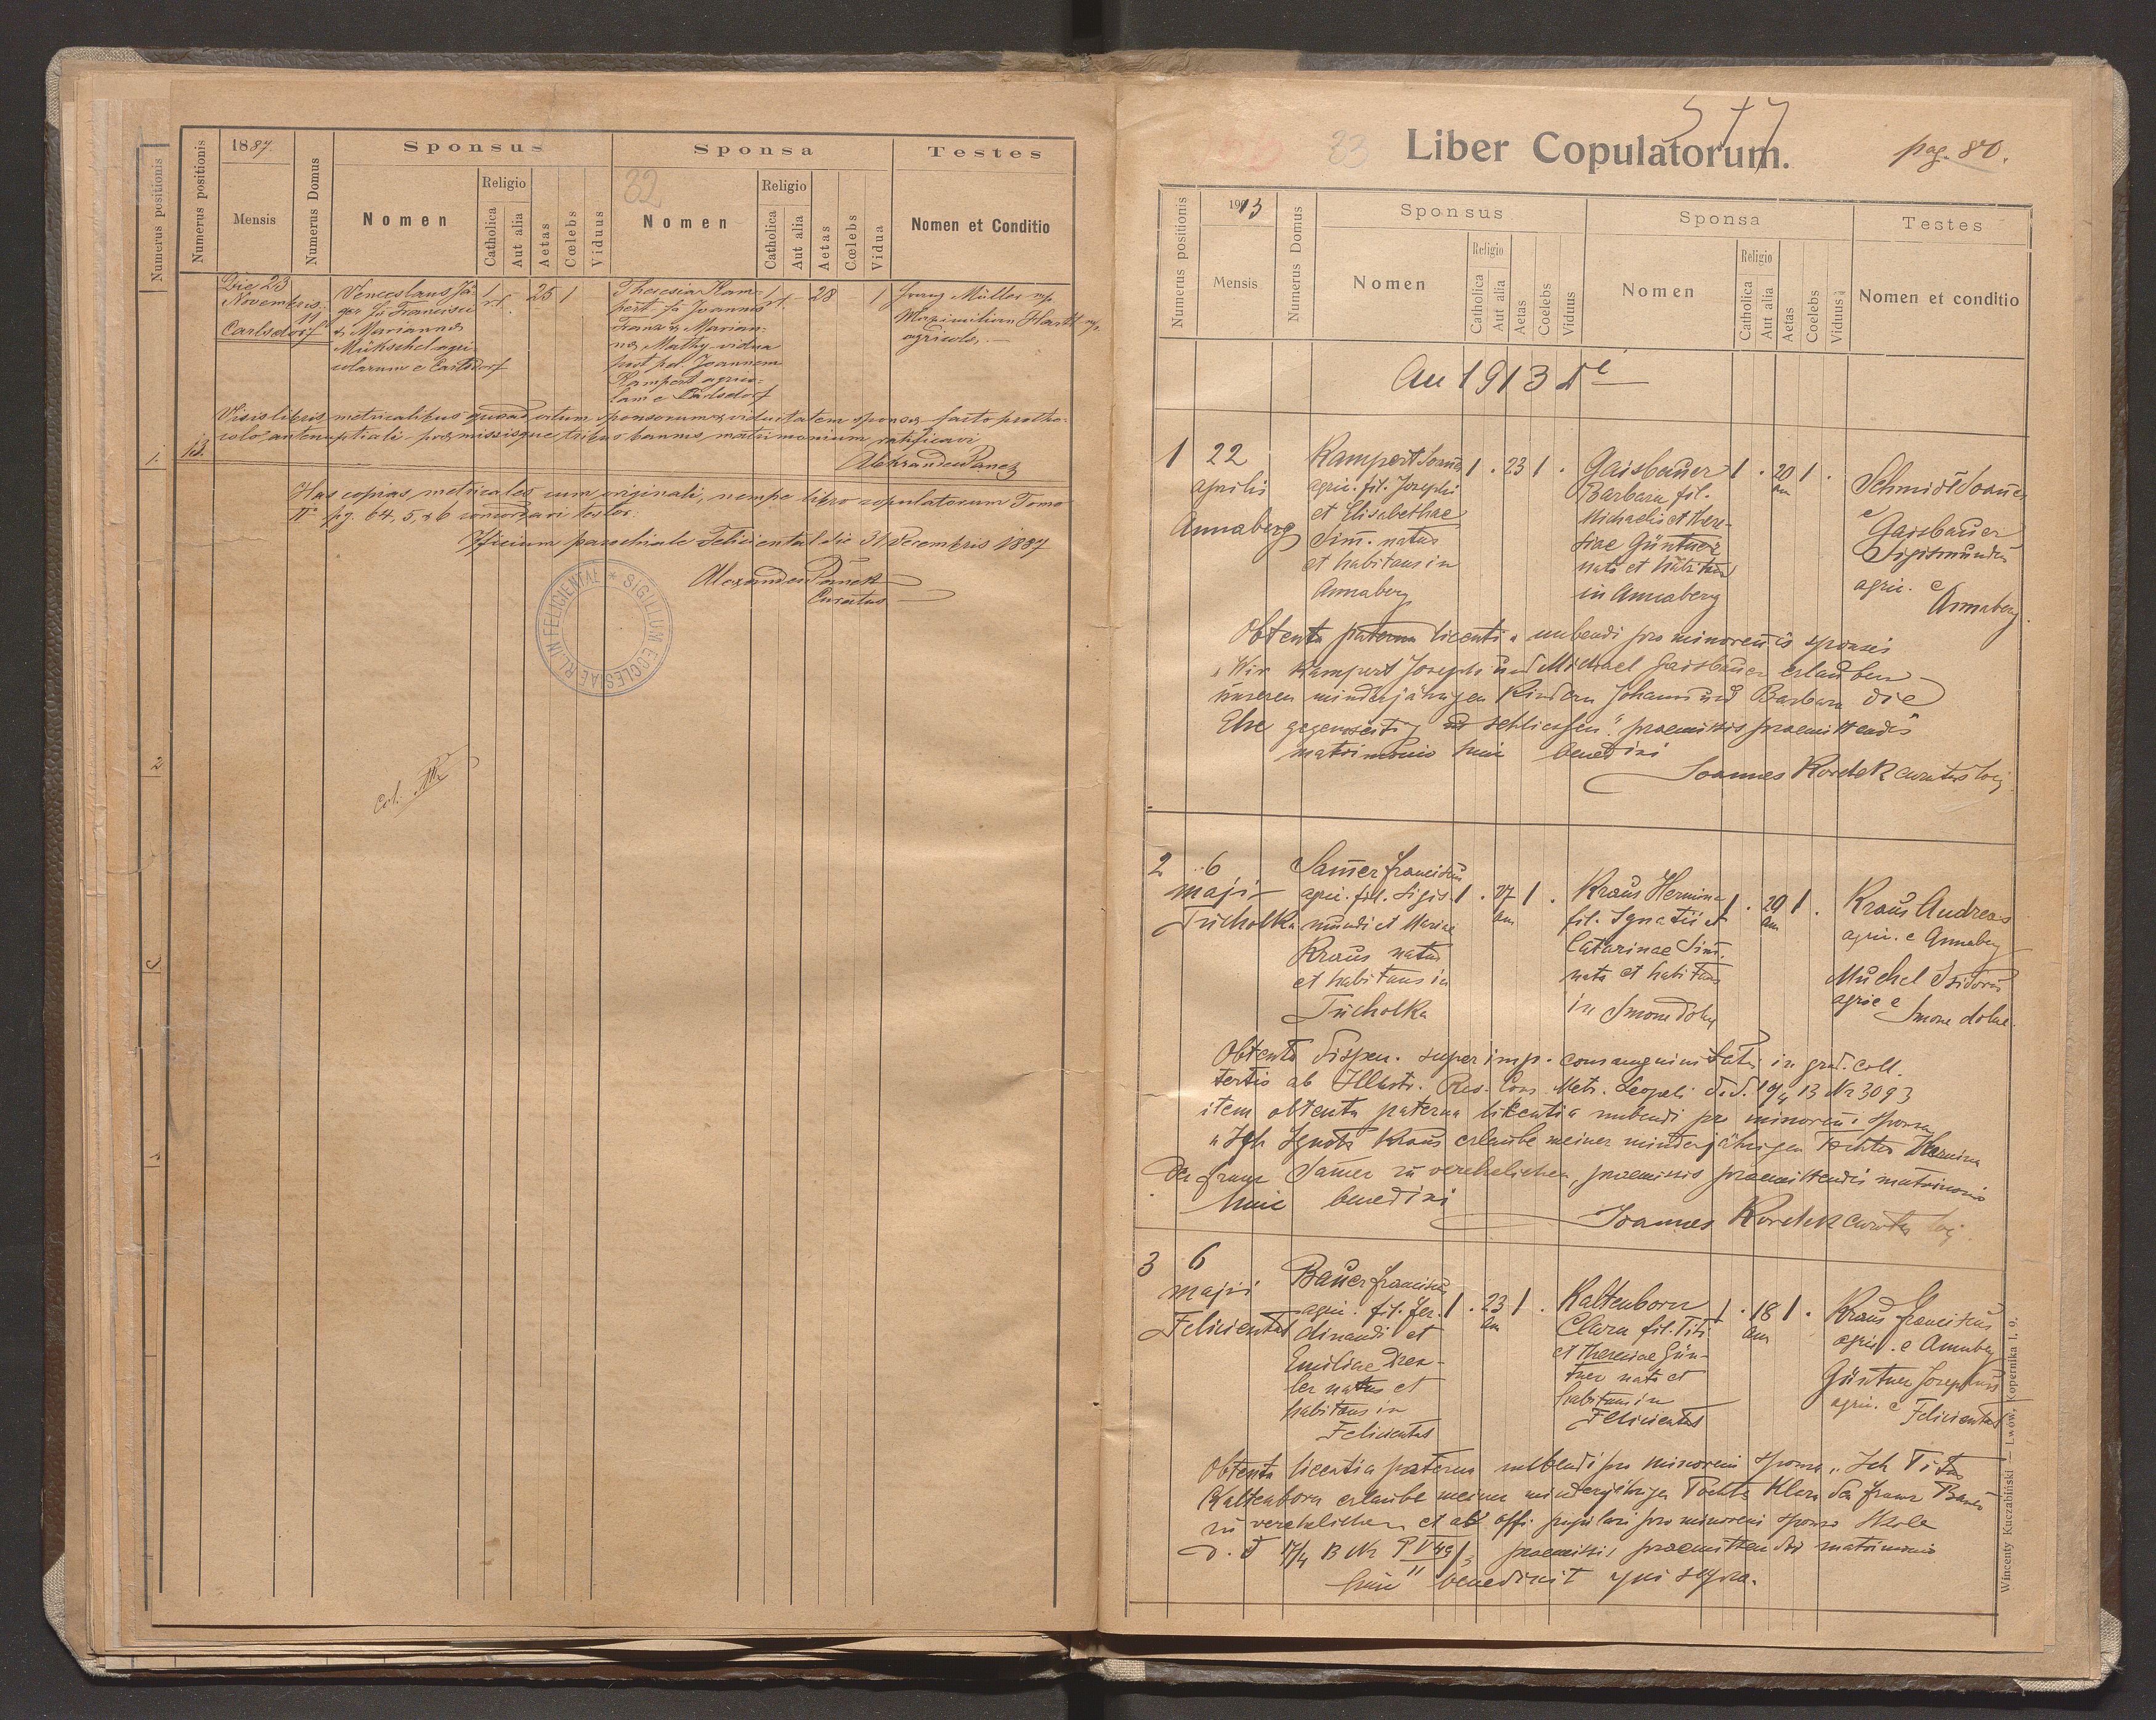 Numerus positionis
1.
2
3
Numerus positionis
1887.
Mensis
Numerus Domus
Sponsus
Nomen
Religio
Catholica
Aut alia
Aetas
Cœlebs
Viduus
32
Sponsa
Nomen
Religio
Catholica
Aut alia
Aetas
Cœlebs
Vidua
Testes
Nomen et Conditio
13.
Die 23
Novembris
11
Carlsdorf
Venceslaus Jä-
ger fs Francisci
& Mariannæ
Mükschel agri-
colarum e Carlsdorf
1
25
1
Theresia Ram-
pert fa Joannis
Franz & Marian-
næ Mathy vidua
post pd. Joannem
Rampert agrico-
lam e Carlsdorf
1
28
1
Franz Müller mp.
Maximilian Hartl mp.
agricolæ.
Visis libris metricalibus quoad ortum sponsorum & viduitatem sponsæ facto protho-
colo antenuptiali præmissisque tribus bannis matrimonium ratificavi
Alexander Panek
Has copias metricales cum originali, nempe libro copulatorum Tomo
II° pg. 64, 5, & 6 concordari testor:
Officium parochiale Felicienthal die 31 Decembris 1887
Alexander Panek
Curatus
SIGILLUM ECCLESIAE RL. IN FELICIENTAL
Col.
83
Liber Copulatorum.
pag. 80.
Numerus positionis
1913
Mensis
Numerus Domus
Sponsus
Nomen
Religio
Catholica
Aut alia
Aetas
Coelebs
Viduus
Sponsa
Nomen
Religio
Catholica
Aut alia
Aetas
Coelebs
Viduus
Testes
Nomen et conditio
An 1913 Di
1
22
aprilis
Annaberg
Rampert Joañes
agric. fil. Josephi
et Elisabethae
Sim. natus
et habitans in
Annaberg
1 . 23 1 .
Gaisbauer
Barbara fil.
Michaelis et There-
siae Güntner
nata et habitans
in Annaberg
1 . 20 1 .
an
Schmidt Joañes
e
Gaisbauer
Sigismundus
agric. e
Annaberg
Obtenta paterna licentia nubendi pro minorenis sponsis
„Wir Rampert Joseph und Michael Gaisbauer erlauben
unseren minderjährigen Kindern Johann und Barbara die
Ehe gegenseitig zu schliessen." praemissis praemittendis
matrimonio huic benedixi
Joannes Kordek curatus loci
2
6
maji
Tucholka
Samer Franciscus
agric. fil. Sigis-
mundi et Mariae
Kraus natus
et habitans in
Tucholka
1 . 27 1 .
an
Kraus Hermina
fil. Ignatii et
Catarinae Sim.
nata et habitans
in Smorze dolne
1 . 20 1 .
an
Kraus Andreas
agric. e Annaberg
Muchel Isidorus
agric e
Smorze dolne.
Obtenta dispen. super imp. consanguinitatis in grad. coll.
tertio ab Illustr. Rev. Cons Metr. Leopoli d.d. 19/4 13 Nr 3093
item obtenta paterna licentia nubendi pro minoreni sponsa
„Ich Ignatz Kraus erlaube meiner minderjährigen Tochter Hermina
den Franz Samer zu verehelichen, praemissis praemittendis matrimonio
huic benedixi
Joannes Kordek curatus loci
3
6
maji
Felicienthal
Bauer Franciscus
agric. fil. Fer-
dinandi et
Emiliae Drex-
ler natus et
habitans in
Felicienthal
1 . 23 1 .
an
Kaltenborn
Clara fil. Titi
et Theresiae Gün-
tner nata et
habitans in
Felicienthal
1 . 18 1 .
an
Kraus Franciscus
agric. e Annaberg
Güntner Josephus
agric. e
Felicienthal
Obtenta licentia paterna nubendi pro minoreni sponsa „Ich Titus
Kaltenborn erlaube meiner minderjährigen Tochter Klara den Franz Bauer
zu verehelichen et ab offi. pupilari pro minoreni sponso Skole
d. d 17/4 13 Nr P V 49/3 praemissis praemittendis matrimonio
11
huic benedixit qui supra.
Wincenty Kuczabiński — Lwów, Kopernika l. 9.